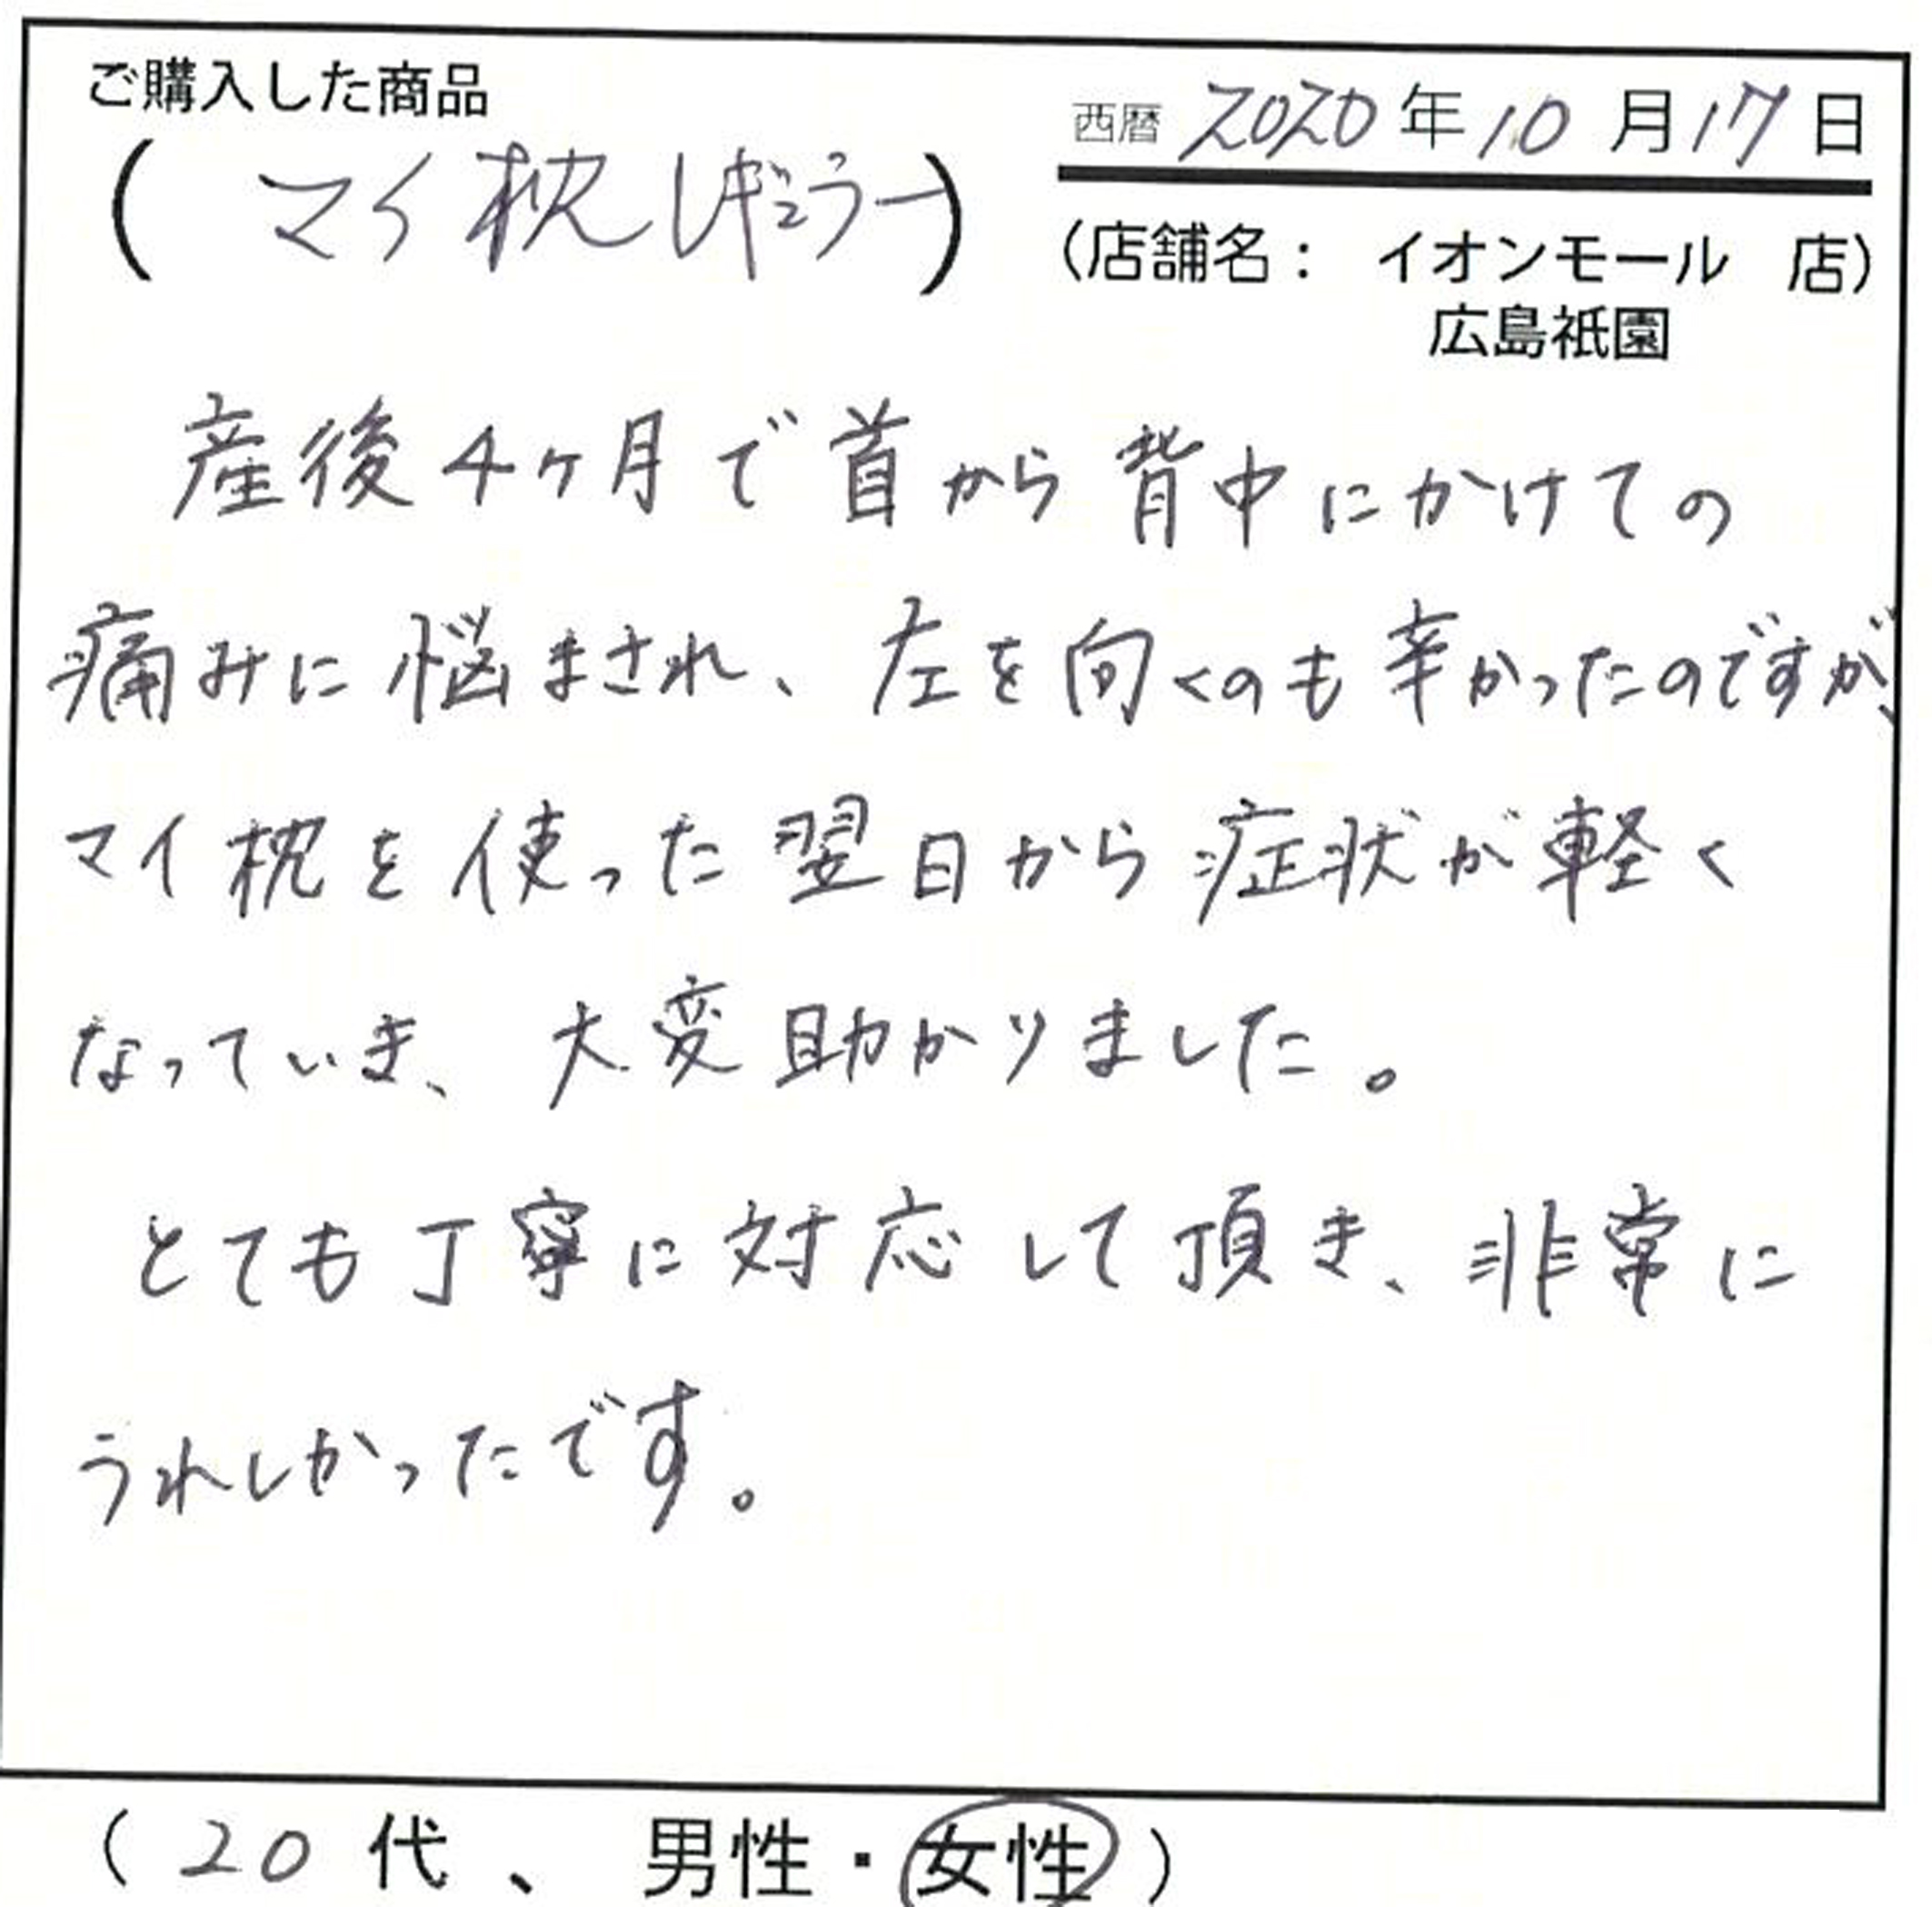 ご購入した商品
西暦 2020 年 10 月 17 日
( マイ枕 レギュラー )
(店舗名： イオンモール 店)
広島祇園
産後4ヶ月で首から背中にかけての
痛みに悩まされ、左を向くのも辛かったのですが、
マイ枕を使った翌日から症状が軽く
なっていき、大変助かりました。
とても丁寧に対応して頂き、非常に
うれしかったです。
( 20 代、 男性・女性 )